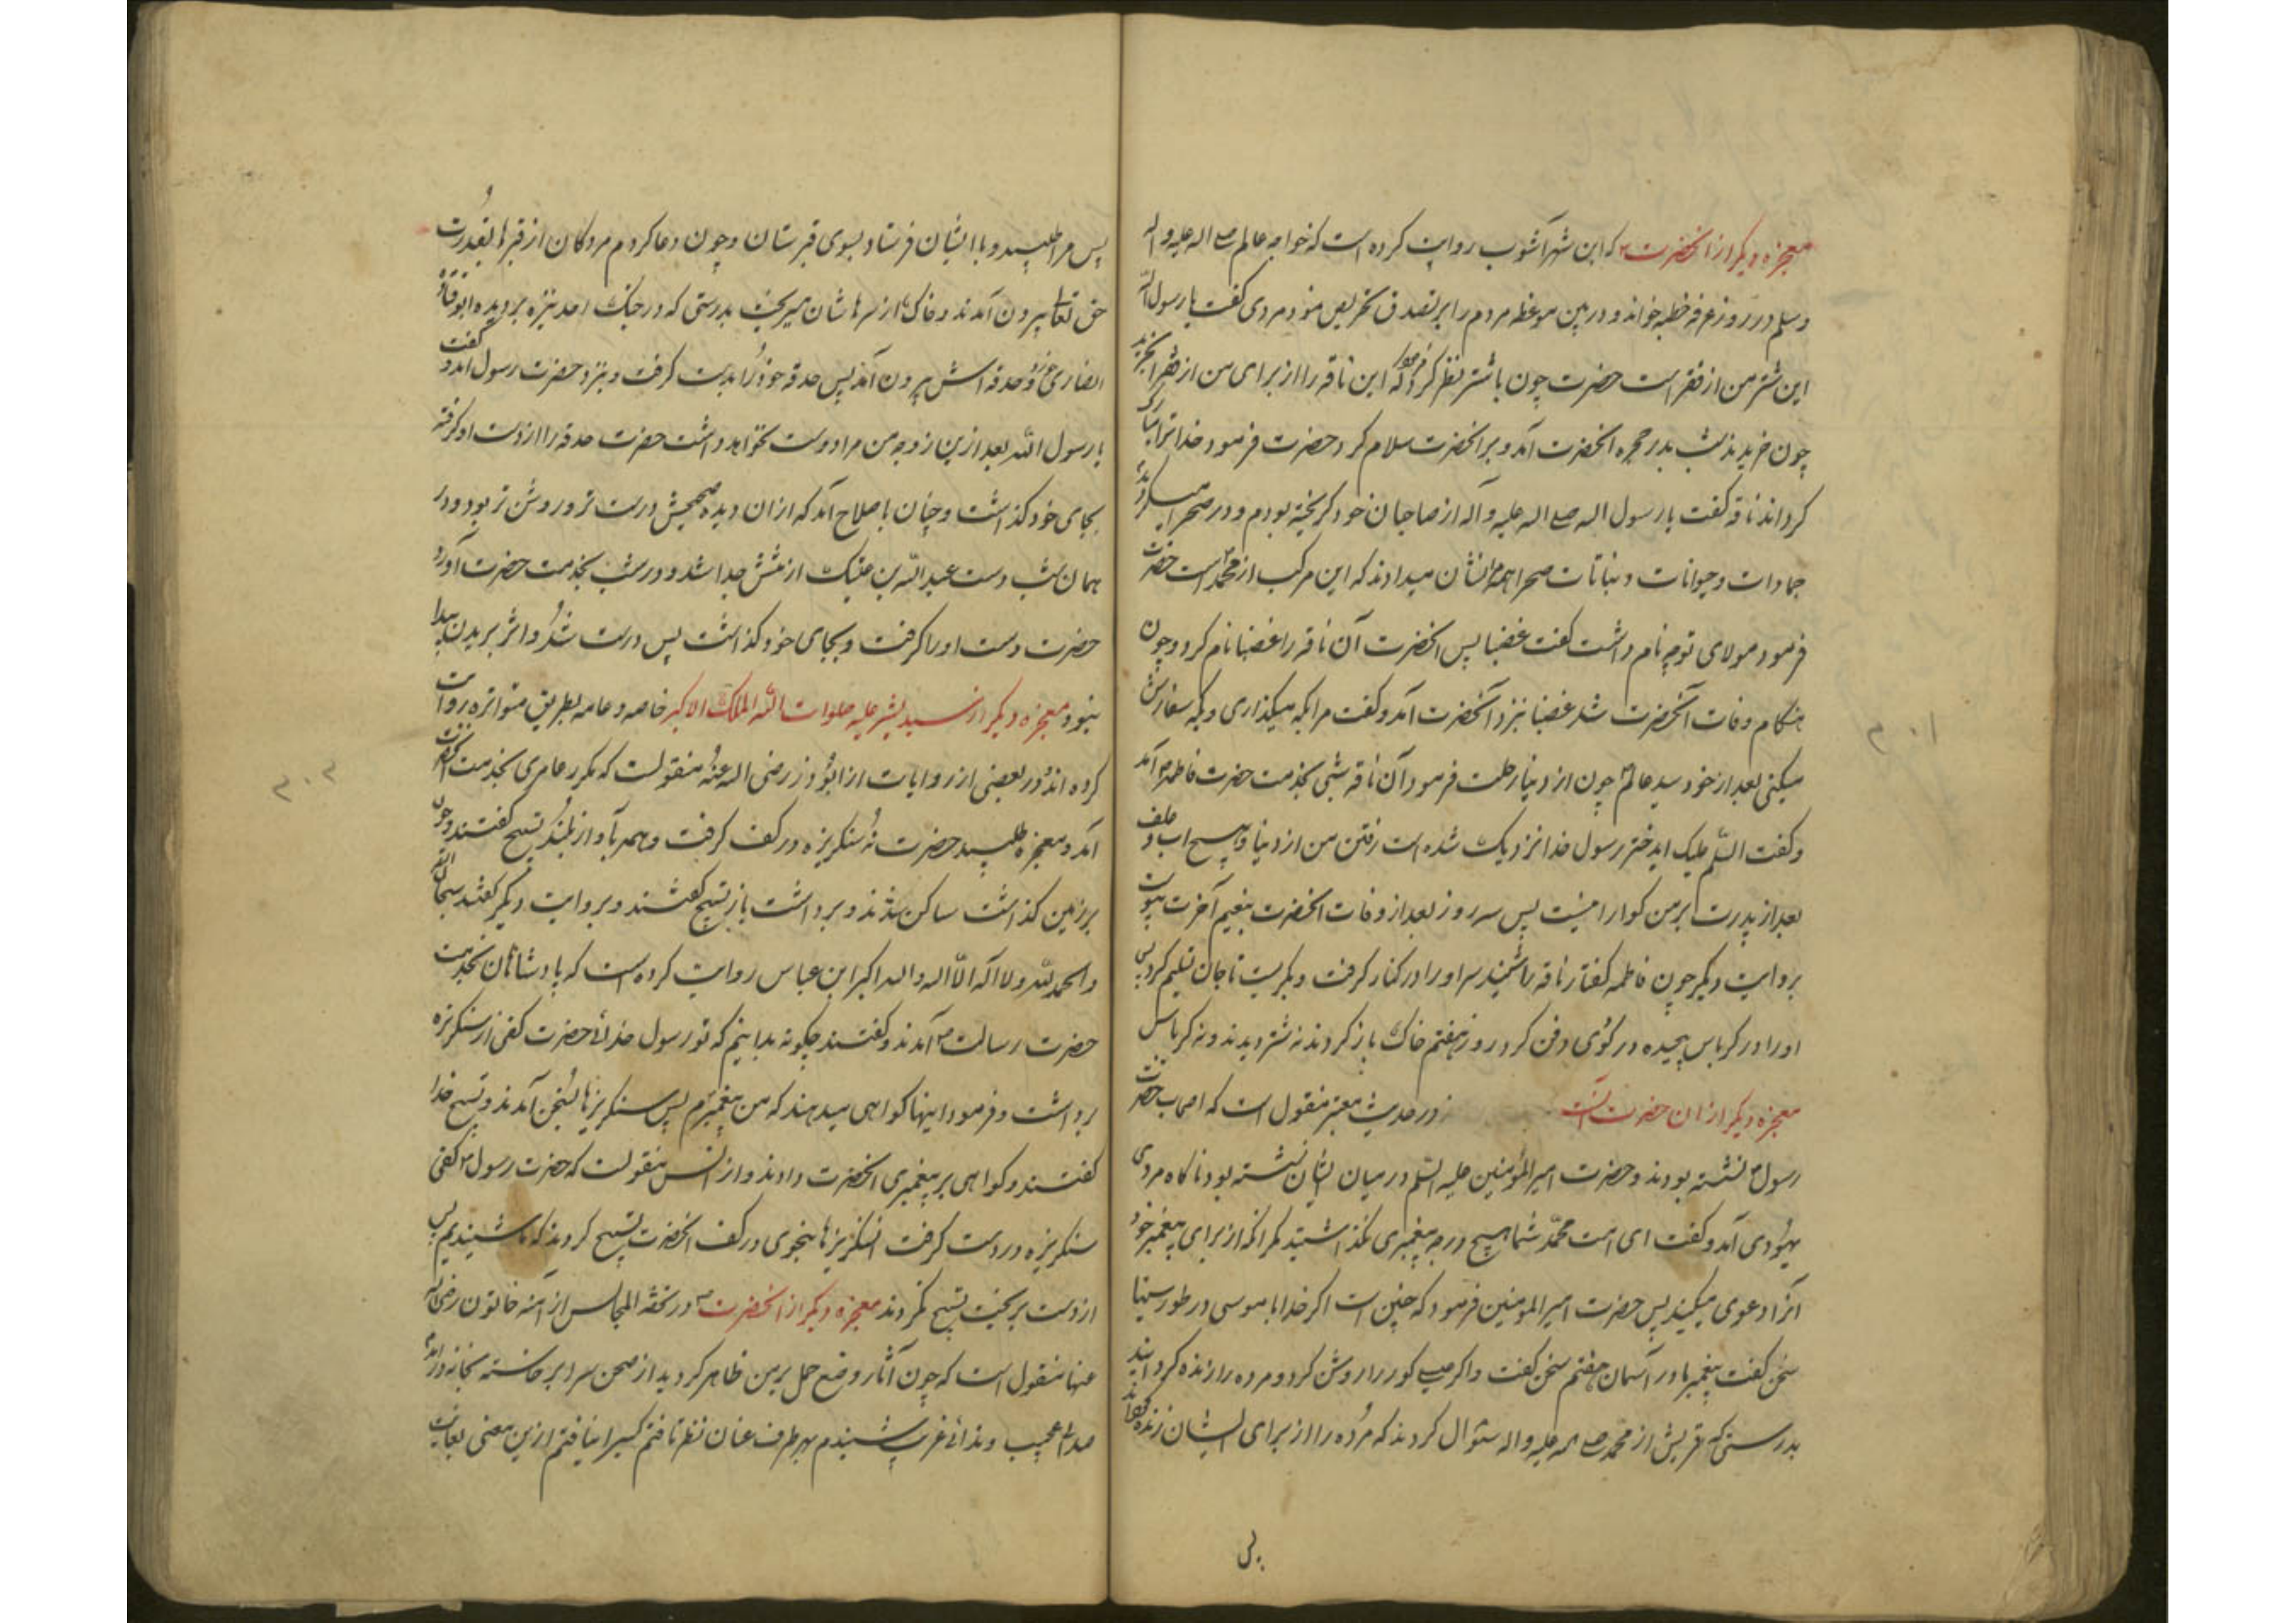 معجزه دیکر از انحضرت که ابن شهرآشوب روایت کرده است که خواجه عالم صلی اله علیه و اله
و سلم در روز عرفه خطبه خواند و در بین موعظه مردم را بر تصدق تحریص نمود مردی کفت یا رسول الله
این شتر من از فقر است حضرت چون با شتر نظر کرد فرمود که این ناقه را از برای من از فقرا بخرید
چون خریدند شب بدر حجره انحضرت آمد و بر انحضرت سلام کرد حضرت فرمود خدا ترا مبارک
کرداند ناقه کفت یا رسول اله صلی اله علیه و آله از صاحبان خود کریخته بودم و در صحرا میکردیدم
جمادات و حیوانات و نباتات صحرا همه مرا نشان میدادند که این مرکب از محمد است حضرت
فرمود مولای تو چه نام داشت کفت غضبا پس انحضرت آن ناقه را غضبا نام کرد و چون
هنکام وفات آنحضرت شد غضبا بنزد آنحضرت آمد و کفت مرا بکه میکذاری و بکه سفارش
میکنی بعد از خود سید عالم چون از دنیا رحلت فرمود آن ناقه شبی بخدمت حضرت فاطمه آمد
و کفت السلم علیک ای دختر رسول خدا نزدیک شده است رفتن من از دنیا و هیچ اب و علف
بعد از پدرت بر من کوارا نیست پس سه روز بعد از وفات انحضرت بنعیم آخرت پیوست
بروایت دیکر چون فاطمه کفتار ناقه را شنید سر او را در کنار کرفت و بکریست تا جان تسلیم کرد پس
او را در کرباس پیچیده در کوی دفن کرد روز هفتم خاک باز کردند نه شتر دیدند و نه کرباس
معجزه دیکر از ان حضرت آنست در حدیث معتبر منقول است که اصحاب حضرت
رسول نشسته بودند و حضرت امیر المؤمنین علیه السلم در میان ایشان نشسته بود ناکاه مردی
یهودی آمد و کفت ای امت محمد شما هیچ درجه پیغمبری نکذاشتید مکر انکه از برای پیغمبر خود
انرا دعوی میکنید پس حضرت امیر المومنین فرمود که چنین است اکر خدا با موسی در طور سینا
سخن کفت پیغمبر ما در آسمان هفتم سخن کفت و اکر عیسی کور را روشن کرد و مرده را زنده کردانید
بدرستی که قریش از محمد صلی اله علیه و اله سئوال کردند که مرده را از برای ایشان زنده کرداند
پس
۳۰۱
پس مرا طلبید و با ایشان فرستاد بسوی قبرستان و چون دعا کردم مردکان از قبرها بقدرت
حق تعالی بیرون آمدند و خاک از سرهاشان میریخت بدرستی که در جنک احد نیزه بر دیده ابو قتاده
انصاری خورد و حدقه اش بیرون آمد پس حدقه خود را بدست کرفت و بنزد حضرت رسول آمد و کفت
یا رسول الله بعد ازین زوجه من مرا دوست نخواهد داشت حضرت حدقه را از دست او کرفته
بجای خود کذاشت و چنان باصلاح آمد که از ان دیده صحیحش درست تر و روشن تر بود و در
همان شب دست عبد الله بن عتیک از تنش جدا شد و در شب بخدمت حضرت آورد
حضرت دست او را کرفت و بجای خود کذاشت پس درست شد و اثر بریدن پیدا
نبود معجزه دیکر از سید بشر علیه صلوات الله الملک الاکبر خاصه و عامه بطریق متواتره روایت
کرده اند و در بعضی از روایات از ابوذر رضی اله عنه منقولست که مکرر عامری بخدمت انحضرت
آمد و معجزه طلبید حضرت نه سنکریزه در کف کرفت و همه بآواز بلند تسبیح کفتند و چون
بر زمین کذاشت ساکن شدند و برداشت باز تسبیح کفتند و بروایت دیکر کفتند سبحان الله
و الحمد لله و لا اله الا اله و اله اکبر ابن عباس روایت کرده است که پادشاهان بخدمت
حضرت رسالت آمدند و کفتند چکونه بدانیم که تو رسول خدائی حضرت کفی از سنکریزه
برداشت و فرمود اینها کواهی میدهند که من پیغمبرم پس سنکریزها بسخن آمدند و تسبیح خدا
کفتند و کواهی بر پیغمبری انحضرت دادند و از انس منقولست که حضرت رسول کفی
سنکریزه در دست کرفت انسنکریزها بنحوی در کف انحضرت تسبیح کردند که ما شنیدیم پس
از دست بریخت تسبیح نکردند معجزه دیکر از انحضرت در تحفة المجالس از آمنه خاتون رضی اله
عنها منقول است که چون آثار وضع حمل بر من ظاهر کردید از صحن سرا برخاسته بخانه در آمدم
صدای عجیب و ندائی غریب شنیدم بهر طرف عنان نظر تافتم کسیرا نیافتم ازین معنی بغایت
۳۰۲